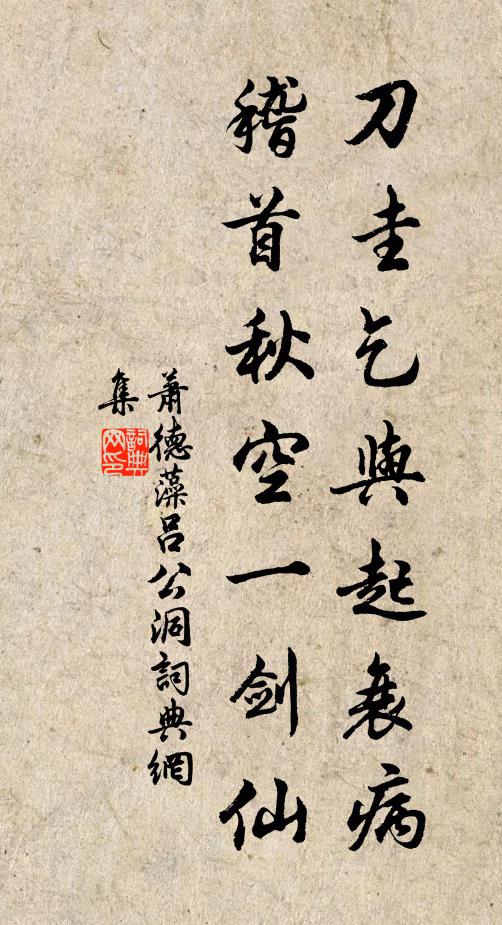 刀圭乞與起衰病
稽首秋空一劍仙
蕭德藻吕公洞詞典網
集
詞典
网印